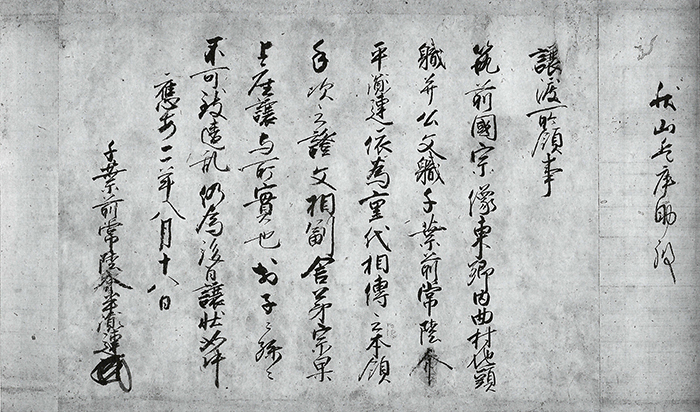 秋山兵庫助殿
讓渡所領事
筑前國宗像東郷内曲村地頭
職并公文職千葉前常陸介
平胤連依為重代相傳之本領
手次之證文相副舎弟宗杲
上座讓与所實也於子々孫々
不可致違乱仍為後日讓状如件
應安二年八月十八日
千葉前常陸介平胤連